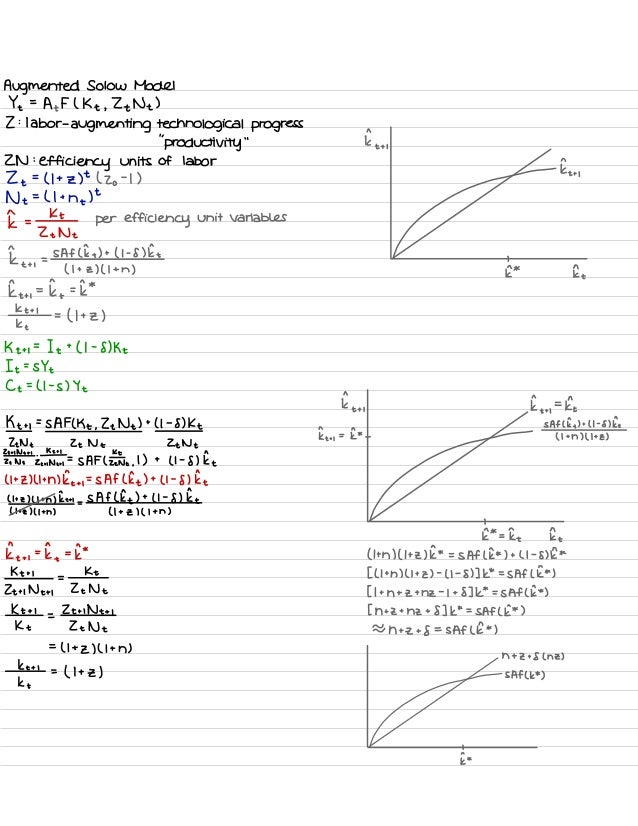 Augmented Solow Model
Yₜ = AₜF(Kₜ, ZₜNₜ)
Z: labor-augmenting technological progress
"productivity"
ZN: efficiency units of labor
Zₜ = (1+z)ᵗ (z₀-1)
Nₜ = (1+nₜ)ᵗ
k̂ = Kₜ / ZₜNₜ per efficiency unit variables
k̂ₜ₊₁ = sAf(k̂ₜ) + (1-δ)k̂ₜ / (1+z)(1+n)
k̂ₜ₊₁ = k̂ₜ = k̂*
kₜ₊₁ / kₜ = (1+z)
Kₜ₊₁ = Iₜ + (1-δ)Kₜ
Iₜ = sYₜ
Cₜ = (1-s)Yₜ
Kₜ₊₁ / ZₜNₜ = sAF(Kₜ, ZₜNₜ) / ZₜNₜ + (1-δ)Kₜ / ZₜNₜ
Zₜ₊₁Nₜ₊₁ / ZₜNₜ · Kₜ₊₁ / Zₜ₊₁Nₜ₊₁ = sAF(Kₜ / ZₜNₜ, 1) + (1-δ)k̂ₜ
(1+z)(1+n)k̂ₜ₊₁ = sAf(k̂ₜ) + (1-δ)k̂ₜ
(1+z)(1+n)k̂ₜ₊₁ / (1+z)(1+n) = sAf(k̂ₜ) + (1-δ)k̂ₜ / (1+z)(1+n)
k̂ₜ₊₁ = k̂ₜ = k̂*
Kₜ₊₁ / Zₜ₊₁Nₜ₊₁ = Kₜ / ZₜNₜ
Kₜ₊₁ / Kₜ = Zₜ₊₁Nₜ₊₁ / ZₜNₜ
= (1+z)(1+n)
kₜ₊₁ / kₜ = (1+z)
k̂ₜ₊₁
k̂ₜ₊₁
k̂*
k̂ₜ
k̂ₜ₊₁
k̂ₜ₊₁ = k̂ₜ
sAf(k̂ₜ) + (1-δ)k̂ₜ / (1+n)(1+z)
k̂ₜ₊₁ = k̂*
k̂* = k̂ₜ
k̂ₜ
(1+n)(1+z)k̂* = sAf(k̂*) + (1-δ)k̂*
[(1+n)(1+z)-(1-δ)]k* = sAf(k̂*)
[1+n+z+nz-1+δ]k* = sAf(k̂*)
[n+z+nz+δ]k* = sAf(k̂*)
≈ n+z+δ = sAf(k̂*)
n+z+δ(nz)
sAf(k*)
k̂*